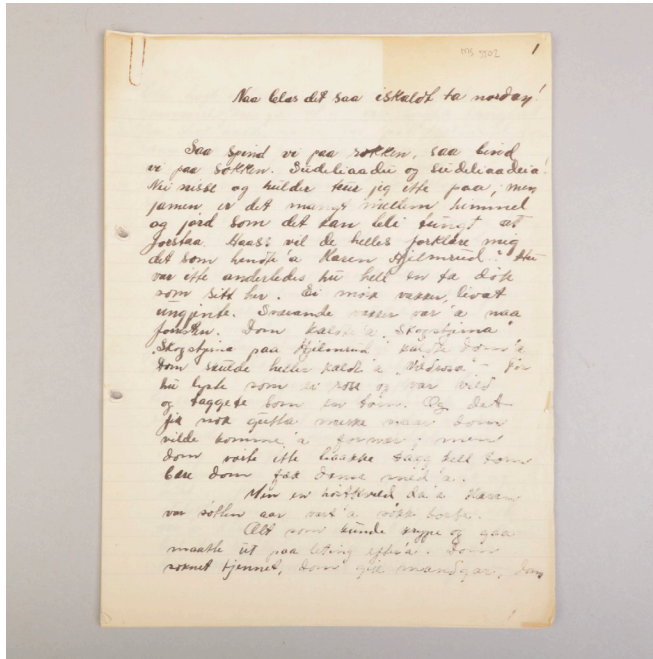 MS 3302
1
Naa blæs det saa iskaldt ta nordøy!
Saa spind vi paa sokken, saa bind
vi paa sokken. Sudeliaadu og sudeliaadeia!
Nei nisse og hulder trur jig itte paa, men
jamen er det mangt mellem himmel
og jord som det kan bli tungt at
forstaa. Haass vil de helles forklare mig
det som hendte 'a Karen Hjelmsrud? Hu
var itte anderledes hu hell en ta dök
som sitt her. Ei möe vakker, livat
ungjente. Svævande vakker var 'a naa
Dom kaldte 'a "Skogstjerna"
"Skogstjerna paa Hjelmsrud" kaldte dom 'a
Dom skulde heller kaldt 'a "Vildrosa" - for
hu lyste som ei rose og var vild
og taggete som en törn. Og det
fik nok gutta merke naar dom
vilde komme 'a for nær; men
dom vøite itte haakke tagg hell törn
bare dom fæk danse med 'a.
Men en höstkveld da a Karen
var sötten aar vart 'a rökke borte.
Alt som kunde krype og gaa
maatte ut paa leting efter 'a. Dom
soknet tjennet, dom gik mandgar, dom